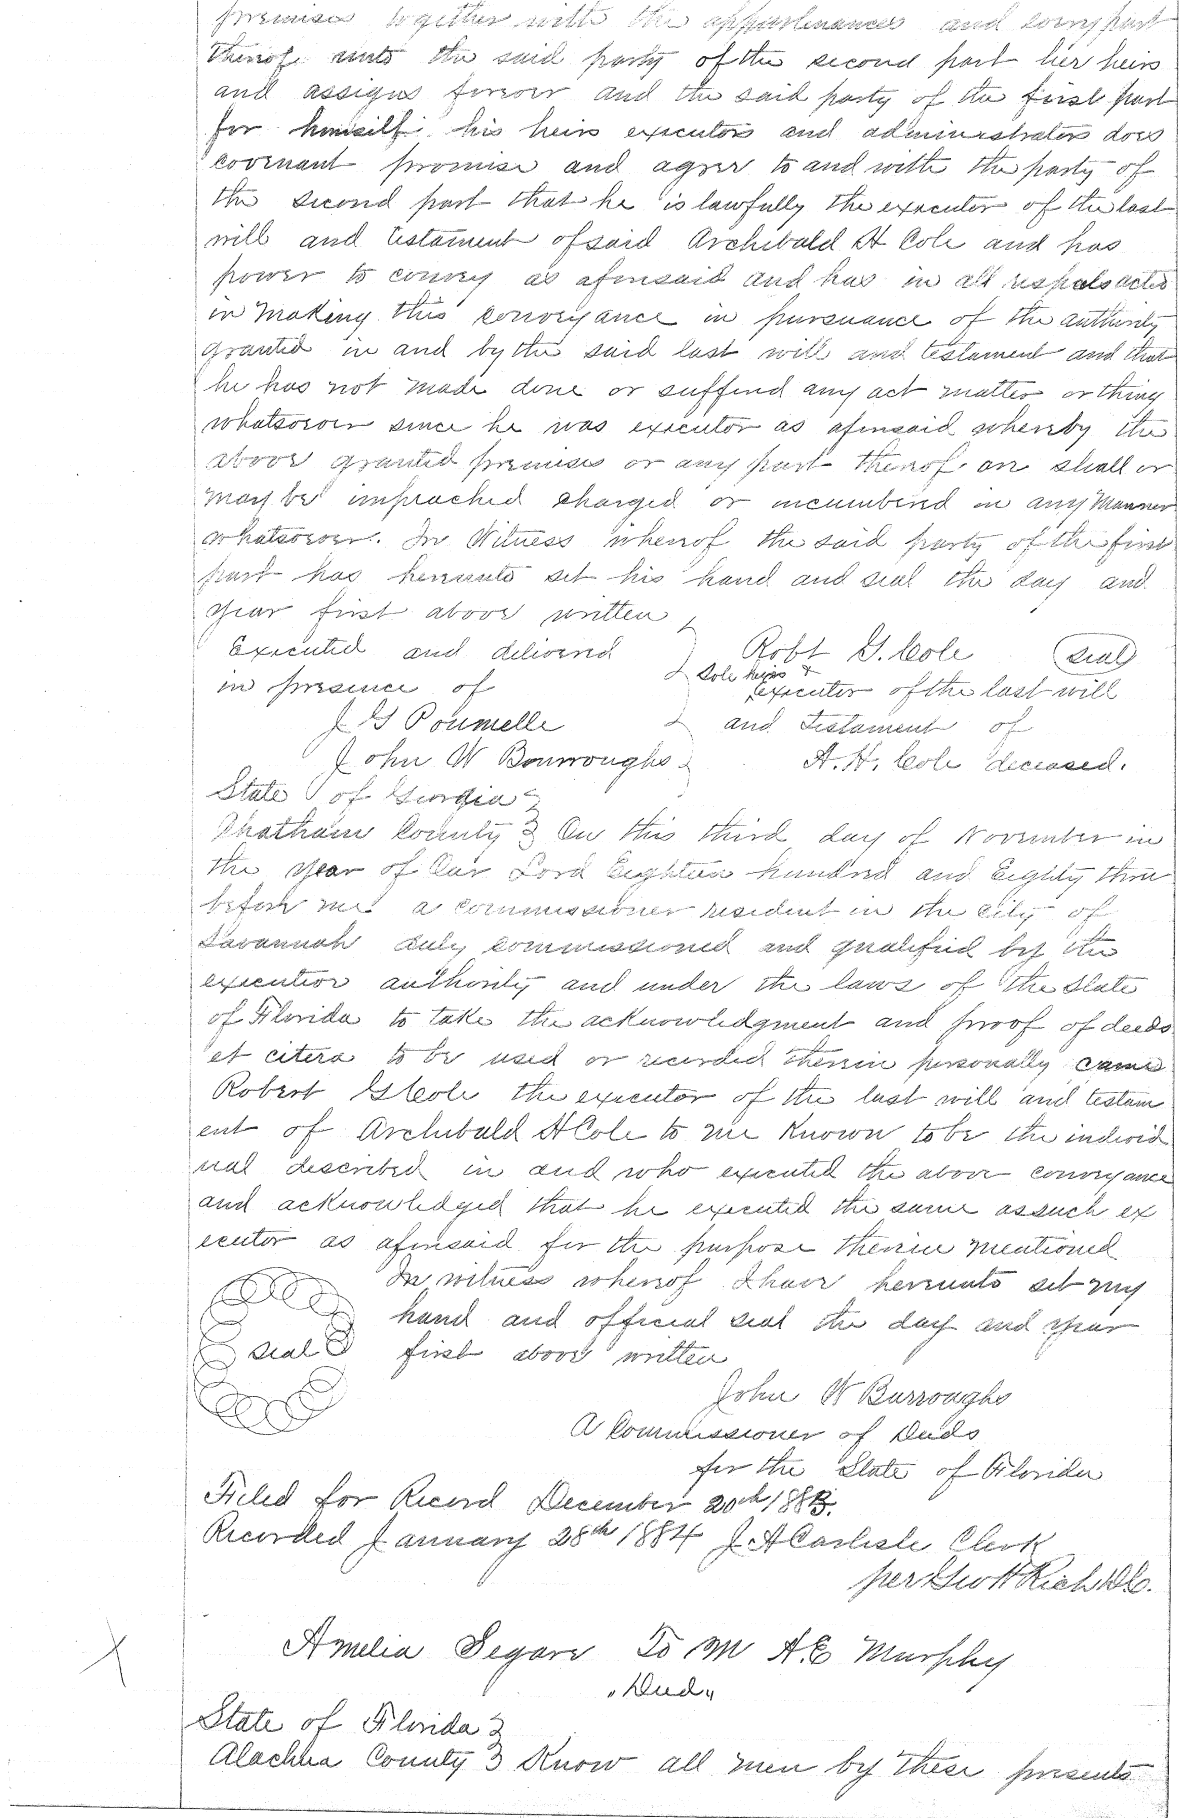 premises together with the appurtenances and every part
thereof unto the said party of the second part her heirs
and assigns forever and the said party of the first part
for himself his heirs executors and administrators does
covenant promise and agree to and with the party of
the second part that he is lawfully the executor of the last
will and testament of said Archibald H Cole and has
power to convey as aforesaid and has in all respects acted
in making this conveyance in pursuance of the authority
granted in and by the said last will and testament and that
he has not made done or suffered any act matter or thing
whatsoever since he was executor as aforesaid whereby the
above granted premises or any part thereof are shall or
may be impeached charged or incumbered in any manner
whatsoever. In Witness whereof the said party of the first
part has hereunto set his hand and seal the day and
year first above written
Executed and delivered Robt G. Cole seal
in presence of Sole heir & executor of the last will
J G Poumelle and testament of
John W Bourroughs A. H. Cole deceased.
State of Georgia
Chatham County } On this third day of November in
the year of Our Lord Eighteen hundred and Eighty three
before me a commissioner resident in the city of
Savannah duly commissioned and qualified by the
execution authority and under the laws of the State
of Florida to take the acknowledgment and proof of deeds
et citera to be used or recorded therein personally came
Robert G Cole the executor of the last will and testam
ent of Archibald H Cole to me known to be the individ
ual described in and who executed the above conveyance
and acknowledged that he executed the same as such ex
ecutor as aforesaid for the purpose therein mentioned
In witness whereof I have hereunto set my
hand and official seal the day and year
seal first above written
John W Burroughs
A Commissioner of Deeds
for the State of Florida
Filed for Record December 20th 1883.
Recorded January 28th 1884 J. A Carlisle Clerk
per Geo H Rich D.C.
Amelia Segars To M A. E Murphy
"Deed"
State of Florida }
Alachua County } Know all men by these presents